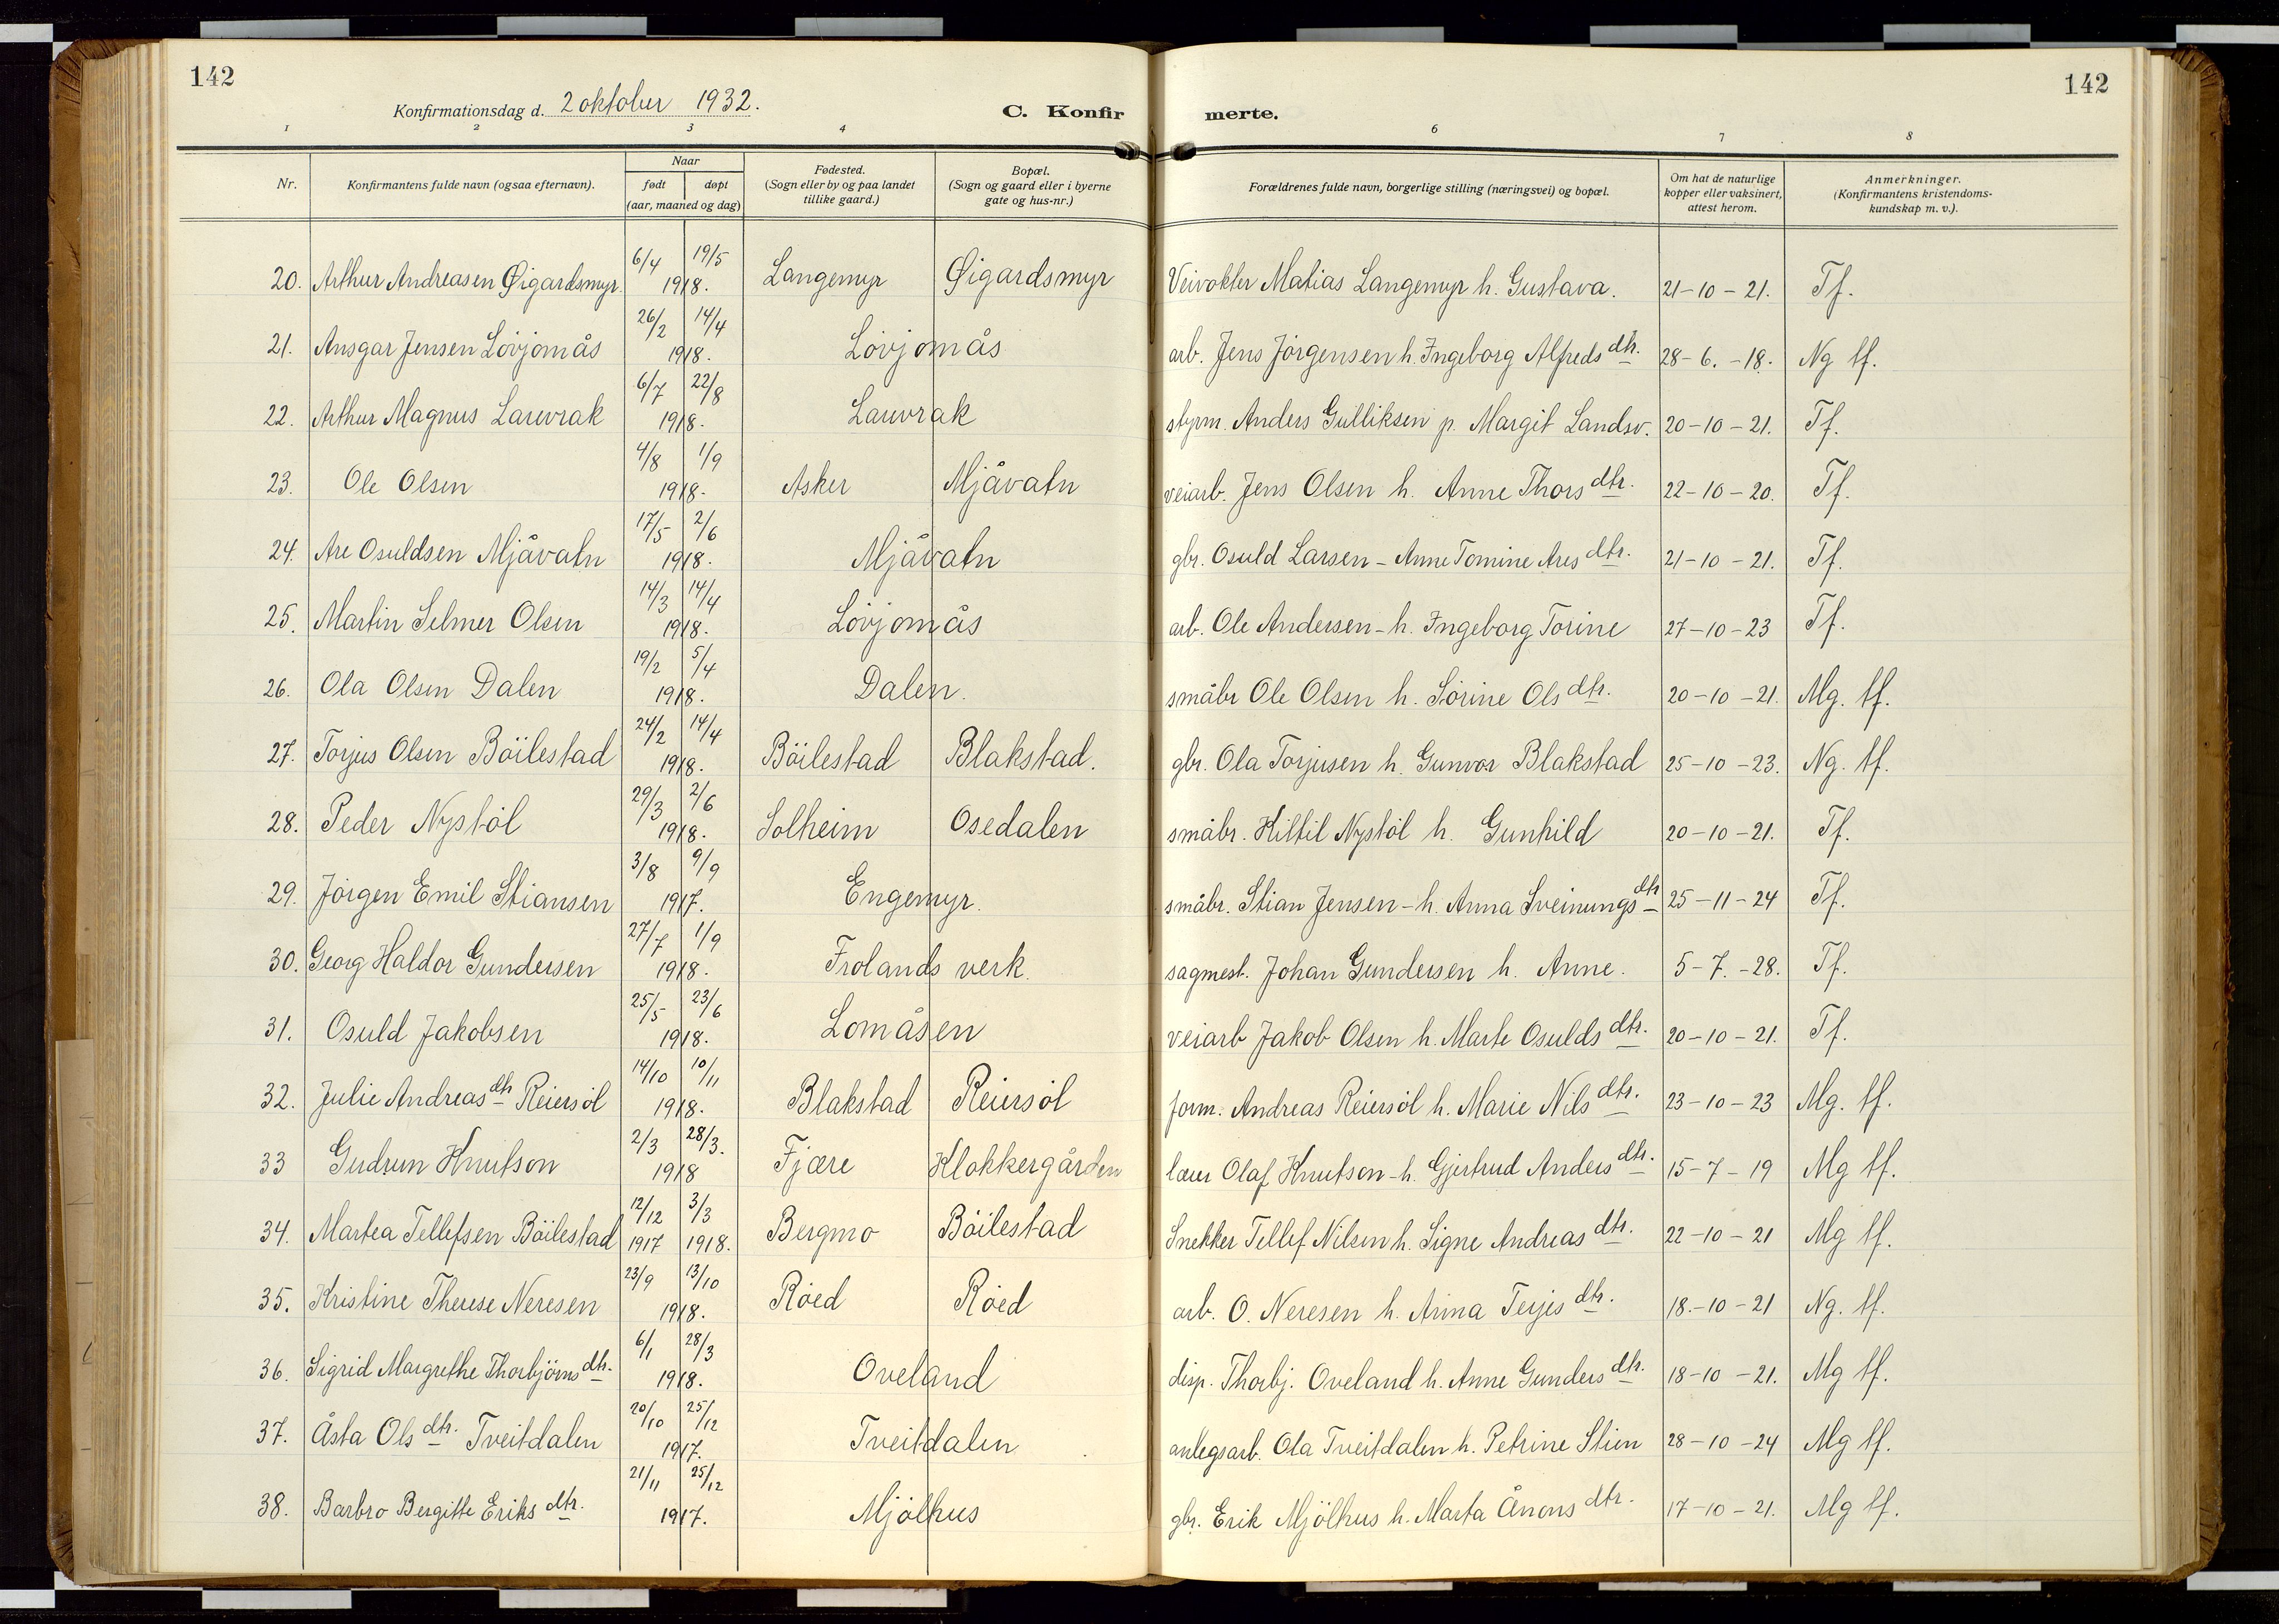 142
142
Konfirmationsdag d. 2 oktober 1932.
C. Konfir merte.
1 2 3 4 6 7 8
Nr.
Konfirmantens fulde navn (ogsaa efternavn).
Naar
født døpt
(aar, maaned og dag)
Fødested.
(Sogn eller by og paa landet
tillike gaard.)
Bopæl.
(Sogn og gaard eller i byerne
gate og hus-nr.)
Forældrenes fulde navn, borgerlige stilling (næringsvei) og bopæl.
Om hat de naturlige
kopper eller vaksinert,
attest herom.
Anmerkninger.
(Konfirmantens kristendoms-
kundskap m. v.).
20. Arthur Andreasen Øigardsmyr 6/4 19/5 1918. Langemyr Øigardsmyr Veivokter Matias Langemyr h. Gustava. 21-10-21. Tf.
21. Ansgar Jensen Lövjomås 26/2 14/4 1918. Lövjomås arb. Jens Jörgensen h. Ingeborg Alfreds dtr. 28-6.-18. Ng tf.
22. Arthur Magnus Lauvrak 6/7 22/8 1918. Lauvrak styrm. Anders Gulliksen p. Margit Landsv. 20-10-21. Tf.
23. Ole Olsen 4/8 1/9 1918. Asker Mjåvatn veiarb. Jens Olsen h. Anne Thors dtr. 22-10-20. Tf.
24. Are Osuldsen Mjåvatn 17/5 2/6 1918. Mjåvatn gbr. Osuld Larsen - Anne Tomine Ares dtr. 21-10-21. Tf.
25. Martin Selmer Olsen 14/3 14/4 1918. Lövjomås arb. Ole Andersen - h. Ingeborg Torine 27-10-23 Tf.
26. Ola Olsen Dalen 19/2 5/4 1918. Dalen. småbr Ole Olsen h. Sörine Ols dtr. 20-10-21. Mg. tf.
27. Torjus Olsen Böilestad 24/2 14/4 1918. Böilestad Blakstad. gbr. Ola Torjusen h. Gunvor Blakstad 25-10-23. Ng. tf.
28. Peder Nystöl 29/3 2/6 1918. Solheim Osedalen småbr. Kittil Nystöl h. Gunhild 20-10-21. Tf.
29. Jörgen Emil Stiansen 3/8 9/9 1917. Engemyr. småbr. Stian Jensen - h. Anna Sveinungs dtr 25-11-24 Tf.
30. Georg Haldor Gundersen 27/7 1/9 1918. Frolands verk. sagmest. Johan Gundersen h. Anne. 5-7.-28. Tf.
31. Osuld Jakobsen 25/5 23/6 1918. Lomåsen veiarb Jakob Olsen h. Marte Osulds dtr. 20-10-21. Tf.
32. Julie Andreas dtr Reiersöl 14/10 10/11 1918. Blakstad Reiersöl form. Andreas Reiersöl h. Marie Nils dtr. 23-10-23 Mg. tf.
33 Gudrun Knutson 2/3 28/3. 1918 Fjære Klokkergården lærer Olaf Knutson - h. Gjertrud Anders dtr. 15-7-19 Mg tf.
34. Martea Tellefsen Böilestad 12/12 1917 3/3 1918. Bergmo Böilestad Snekker Tellef Nilsen h. Signe Andreas dtr. 22-10-21 Mg tf.
35. Kristine Therese Neresen 23/9 13/10 1918. Röed Röed arb. O. Neresen h. Anna Terjes dtr. 18.-10-21 Ng. tf.
36. Sigrid Margrethe Thorbjörns dtr. 6/1 28/3 1918. Oveland disp. Thorbj. Oveland h. Anne Gunders dtr. 18-10-21. Mg tf.
37. Åsta Ols dtr. Tveitdalen 20/10 25/12 1917. Tveitdalen anlegsarb. Ola Tveitdalen h. Petrine Stien 28-10-24 Mg tf.
38. Barbro Bergitte Eriks dtr. 21/11 25/12 1917. Mjölhus gbr. Erik Mjölhus h. Marta Ånons dtr. 17-10-21. Mg tf.